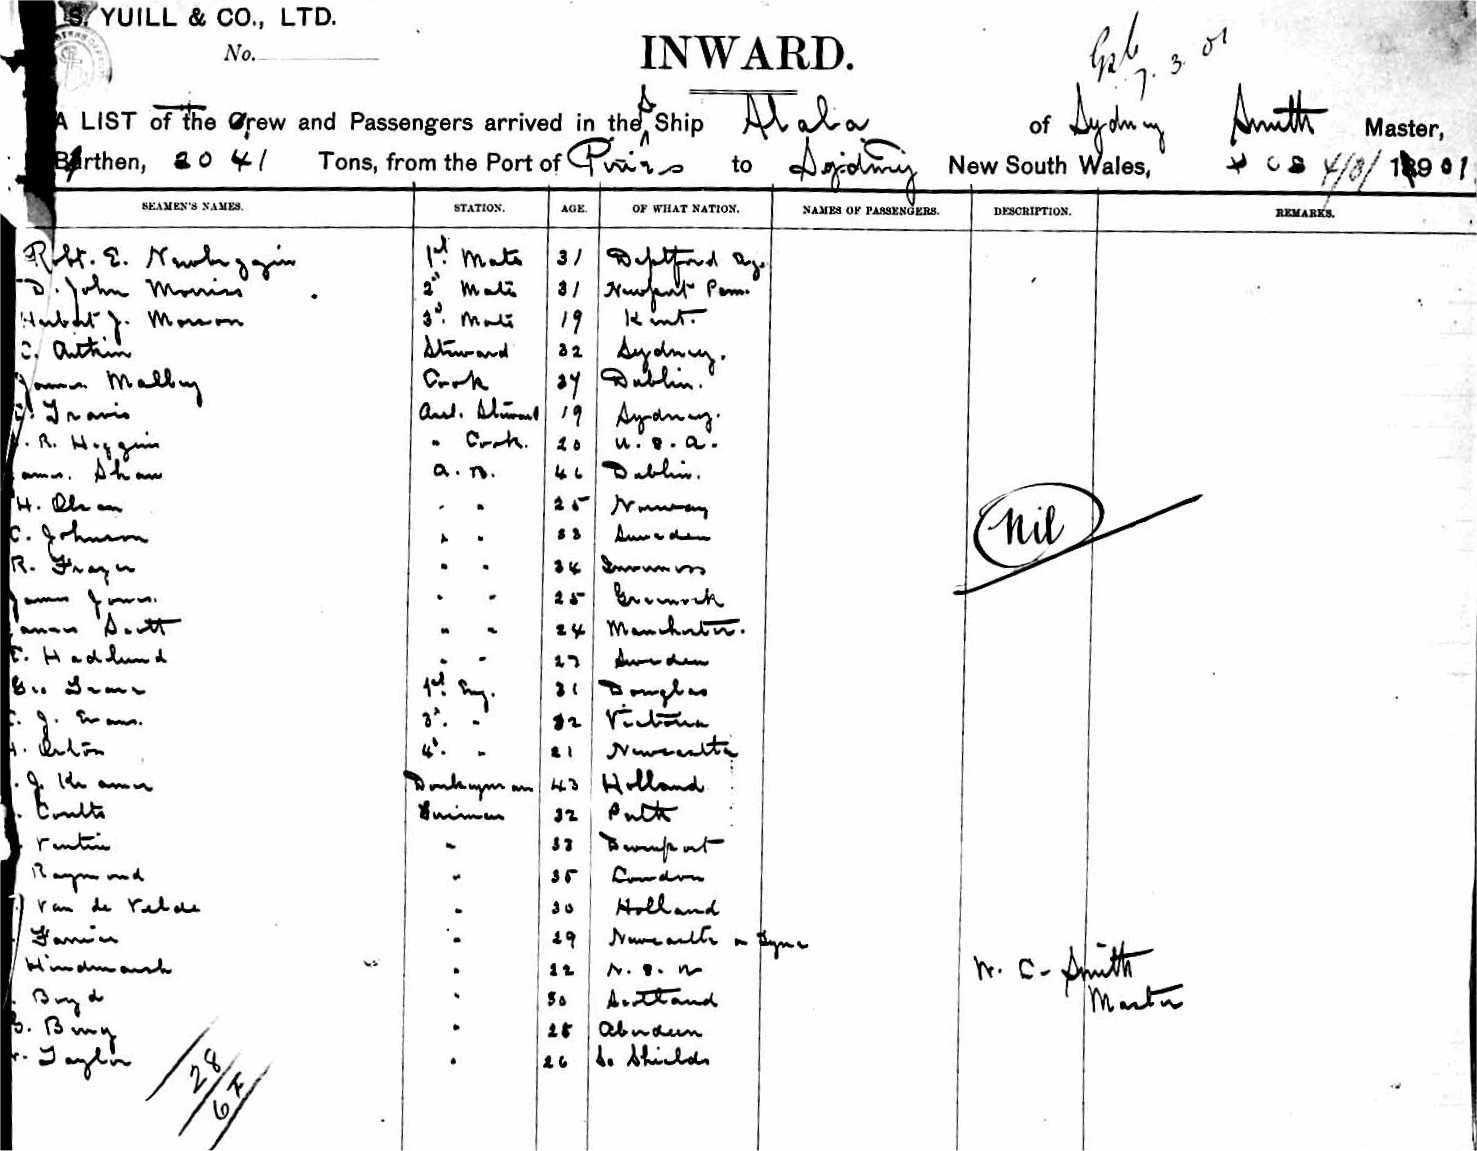 S. YUILL & CO., LTD.
No.
INWARD.
7. 3. 01
A LIST of the Crew and Passengers arrived in the S Ship Alaba of Sydney Smith Master,
Burthen, 2041 Tons, from the Port of to Sydney New South Wales, 4/3/ 1901
SEAMEN'S NAMES. STATION. AGE. OF WHAT NATION. NAMES OF PASSENGERS. DESCRIPTION. REMARKS.
Robt. E. Newbiggin 1st Mate 31 Deptford
D. John Morris 2d Mate 31 Newport Pem.
Herbert J. Morson 3d Mate 19 Kent.
C. Aitkin Steward 32 Sydney.
James Malley Cook 37 Dublin.
Travis Asst. Steward 19 Sydney.
. R. Higgins " Cook. 20 U.S.A.
James Shaw A.B. 46 Dublin.
H. Olsen " " 25 Norway
C. Johnson " " 33 Sweden
R. Frazer " " 34 Inverness
James Jones. " " 25 Greenock
James Scott " " 24 Manchester.
E. Hadlund " " 27 Sweden
Geo Grave 1st Eng. 31 Douglas
. J. Evans. 3d. " 32 Victoria
Orton 4d. " 21 Newcastle
. J. Kramer Donkeyman 43 Holland
. Coutts Fireman 32 Perth
Ventin " 33 Davenport
Raymond " 35 London
Van de Velde " 30 Holland
Farrier " 29 Newcastle on Tyne
Hindmarsh " 22 N.S.W
. Boyd " 30 Scotland
. Berry " 25 Aberdeen
. Taylor " 26 So Shields
Nil
W. C. Smith
Master
28
6F